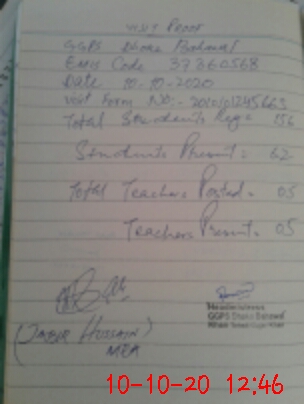 VISIT PROOF
GGPS Dhoke
Emis Code 37360568
Date 10-10-2020
Visit Form NO:-
Total Students Reg: 156
Students Present: 62
Total Teachers Posted = 05
Teachers Present = 05
(JABIR HUSSAIN)
MEA
Headmistress
GGPS
10-10-20 12:46